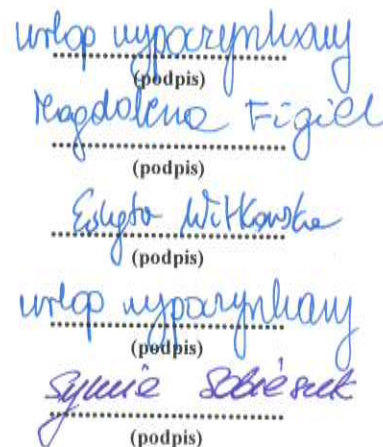 urlop wypoczynkowy
(podpis)
Magdalena Figiel
(podpis)
Edyta Witkowska
(podpis)
urlop wypoczynkowy
(podpis)
Sylwia
(podpis)